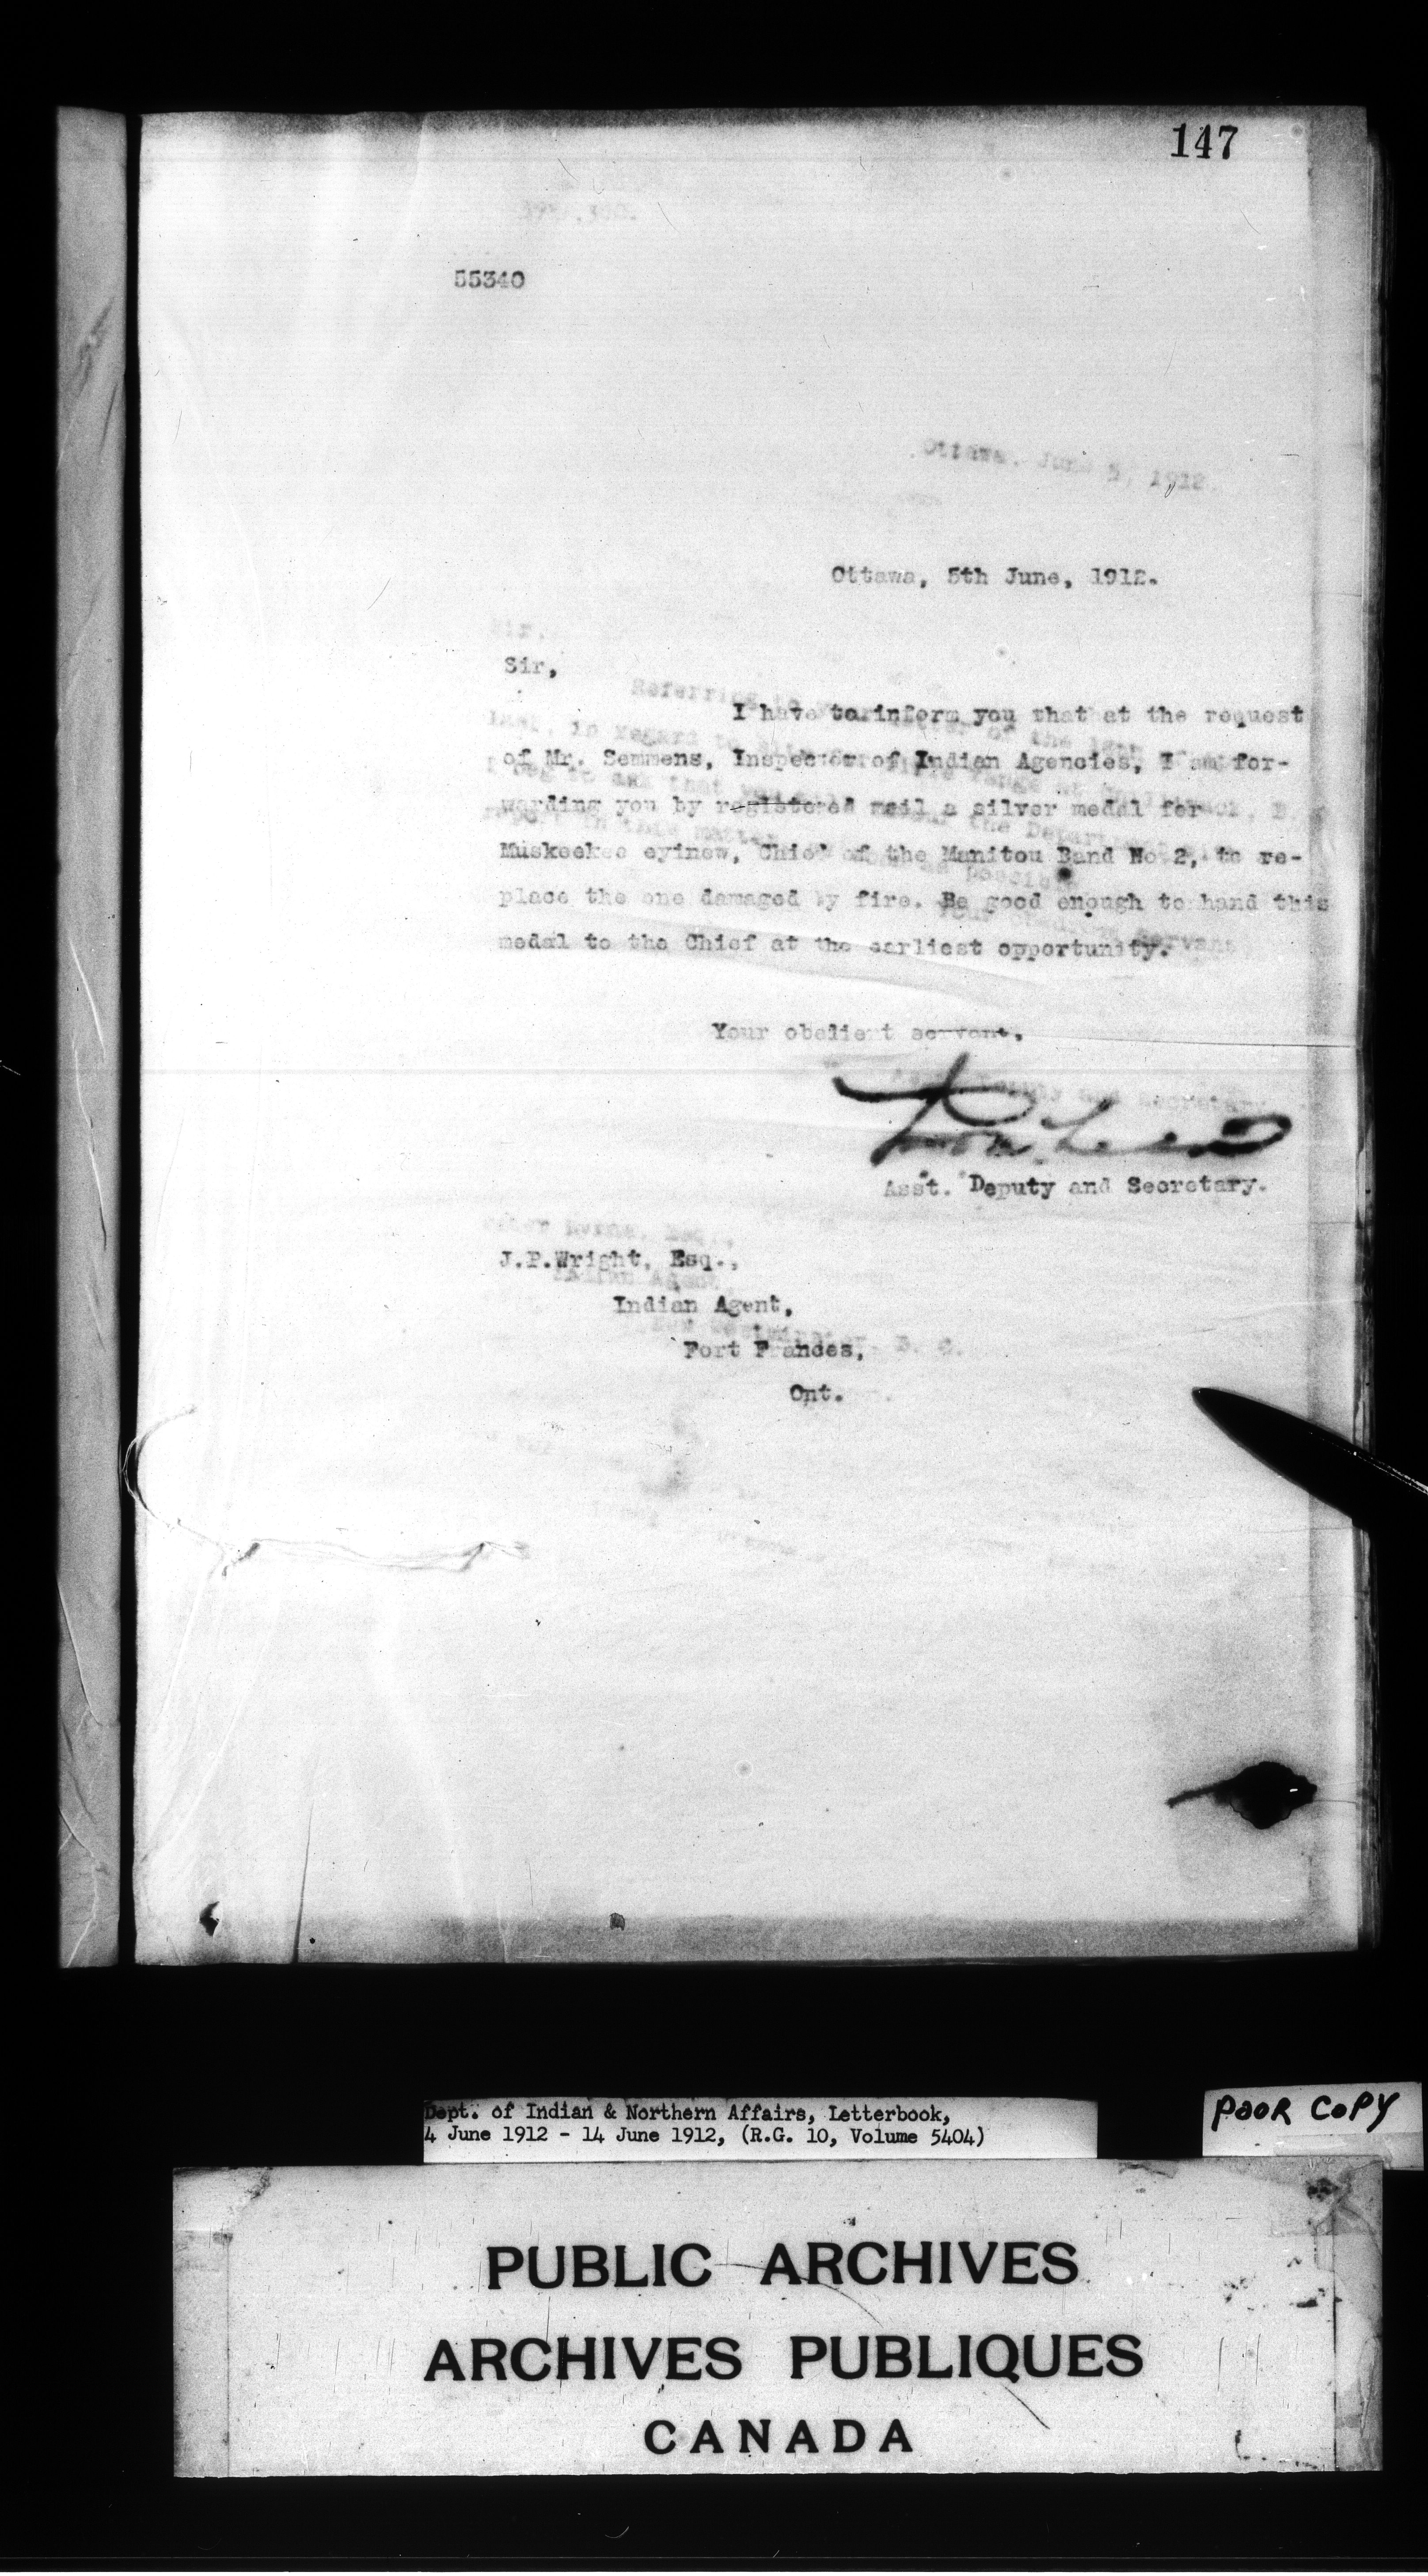 147
55340
Ottawa, June 5, 1912.
Ottawa, 5th June, 1912.
Sir,
Sir,
Referring to
I have to inform you that at the request
of Mr. Semmens, Inspector of Indian Agencies, I am for-
warding you by registered mail a silver medal for
Muskeekee eyinew, Chief of the Manitou Band No 2, to re-
place the one damaged by fire. Be good enough to hand this
medal to the Chief at the earliest opportunity.
Your obedient servant,
Asst. Deputy and Secretary.
J.P.Wright, Esq.,
Indian Agent,
Fort Frances,
Ont.
Dept. of Indian & Northern Affairs, Letterbook,
4 June 1912 - 14 June 1912, (R.G. 10, Volume 5404)
POOR COPY
PUBLIC ARCHIVES
ARCHIVES PUBLIQUES
CANADA